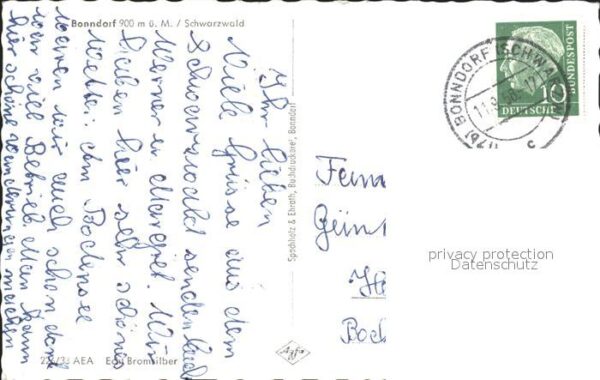 Bonndorf 900 m ü. M. / Schwarzwald
Ihr Lieben
Viele Grüsse aus dem
Schwarzwald senden Euch
Werner u. Margret. Wir
haben hier sehr schönes
Wetter. Am Bodensee
waren wir auch schon dort
war viel Betrieb. Man kann
hier schöne Wanderungen machen
228/33 AEA Echt Bromsilber
Spachholz & Ehrath, Buchdruckerei, Bonndorf
Agfa
BONNDORF (SCHWA
11.9
(17b)
c
10
DEUTSCHE
BUNDESPOST
Fam
Günt
Boc
privacy protection
Datenschutz